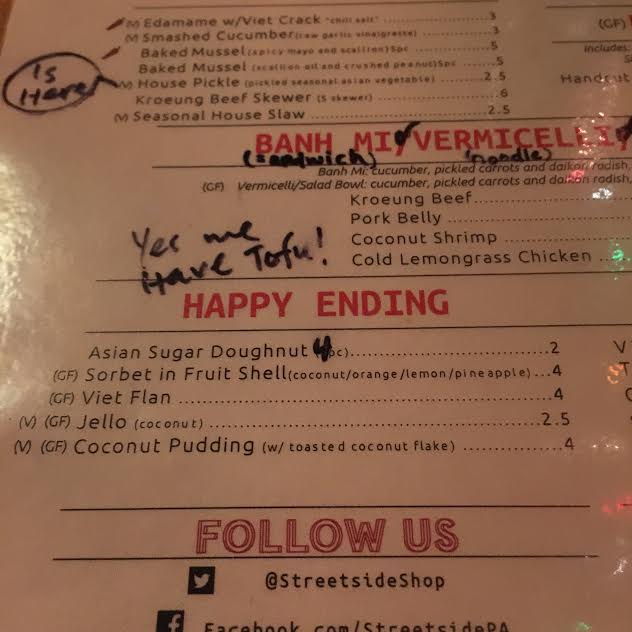 (V) Edamame w/Viet Crack "chili salt" 3
(V) Smashed Cucumber (raw garlic vinaigrette) 3
Baked Mussel (spicy mayo and scallion) 5pc 5
Baked Mussel (scallion oil and crushed peanut) 5pc 5
(V) House Pickle (pickled seasonal asian vegetable) 2.5
Kroeung Beef Skewer (5 skewer) 6
(V) Seasonal House Slaw 2.5
Is Here
(GF)
Includes:
Handcut
BANH MI/VERMICELLI/
(sandwich) (noodle)
Banh Mi: cucumber, pickled carrots and daikon radish,
(GF) Vermicelli/Salad Bowl: cucumber, pickled carrots and daikon radish,
Kroeung Beef
Pork Belly
Coconut Shrimp
Cold Lemongrass Chicken
Yes we
Have Tofu!
HAPPY ENDING
Asian Sugar Doughnut 4 pc) 2
(GF) Sorbet in Fruit Shell (coconut/orange/lemon/pineapple) 4
(GF) Viet Flan 4
(V) (GF) Jello (coconut) 2.5
(V) (GF) Coconut Pudding (w/ toasted coconut flake) 4
FOLLOW US
@StreetsideShop
Facebook.com/StreetsidePA